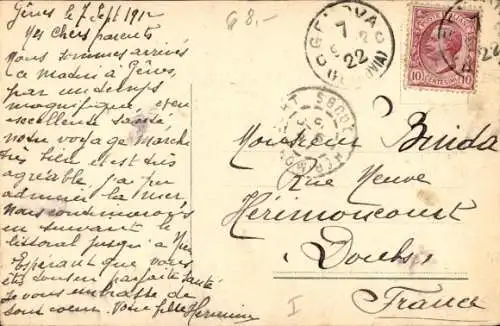 Gênes le 7 Sept 1912
Mes chers parents
Nous sommes arrivés
ce matin à Gênes,
par un temps
magnifique, et en
excellente santé
notre voyage marche
très bien et est très
agréable, j'ai pu
admirer la mer
Nous
en suivant le
littoral jusqu'à
Espérant que vous
êtes tous en parfaite santé
Je vous embrasse de
tout coeur. Votre fille Hermine
G 8.-
GENOVA
7
22
POSTE ITALIANE
10 CENTESIMI 10
22
Monsieur Binda
Rue Neuve
Hérimoncourt
Doubs
France
I